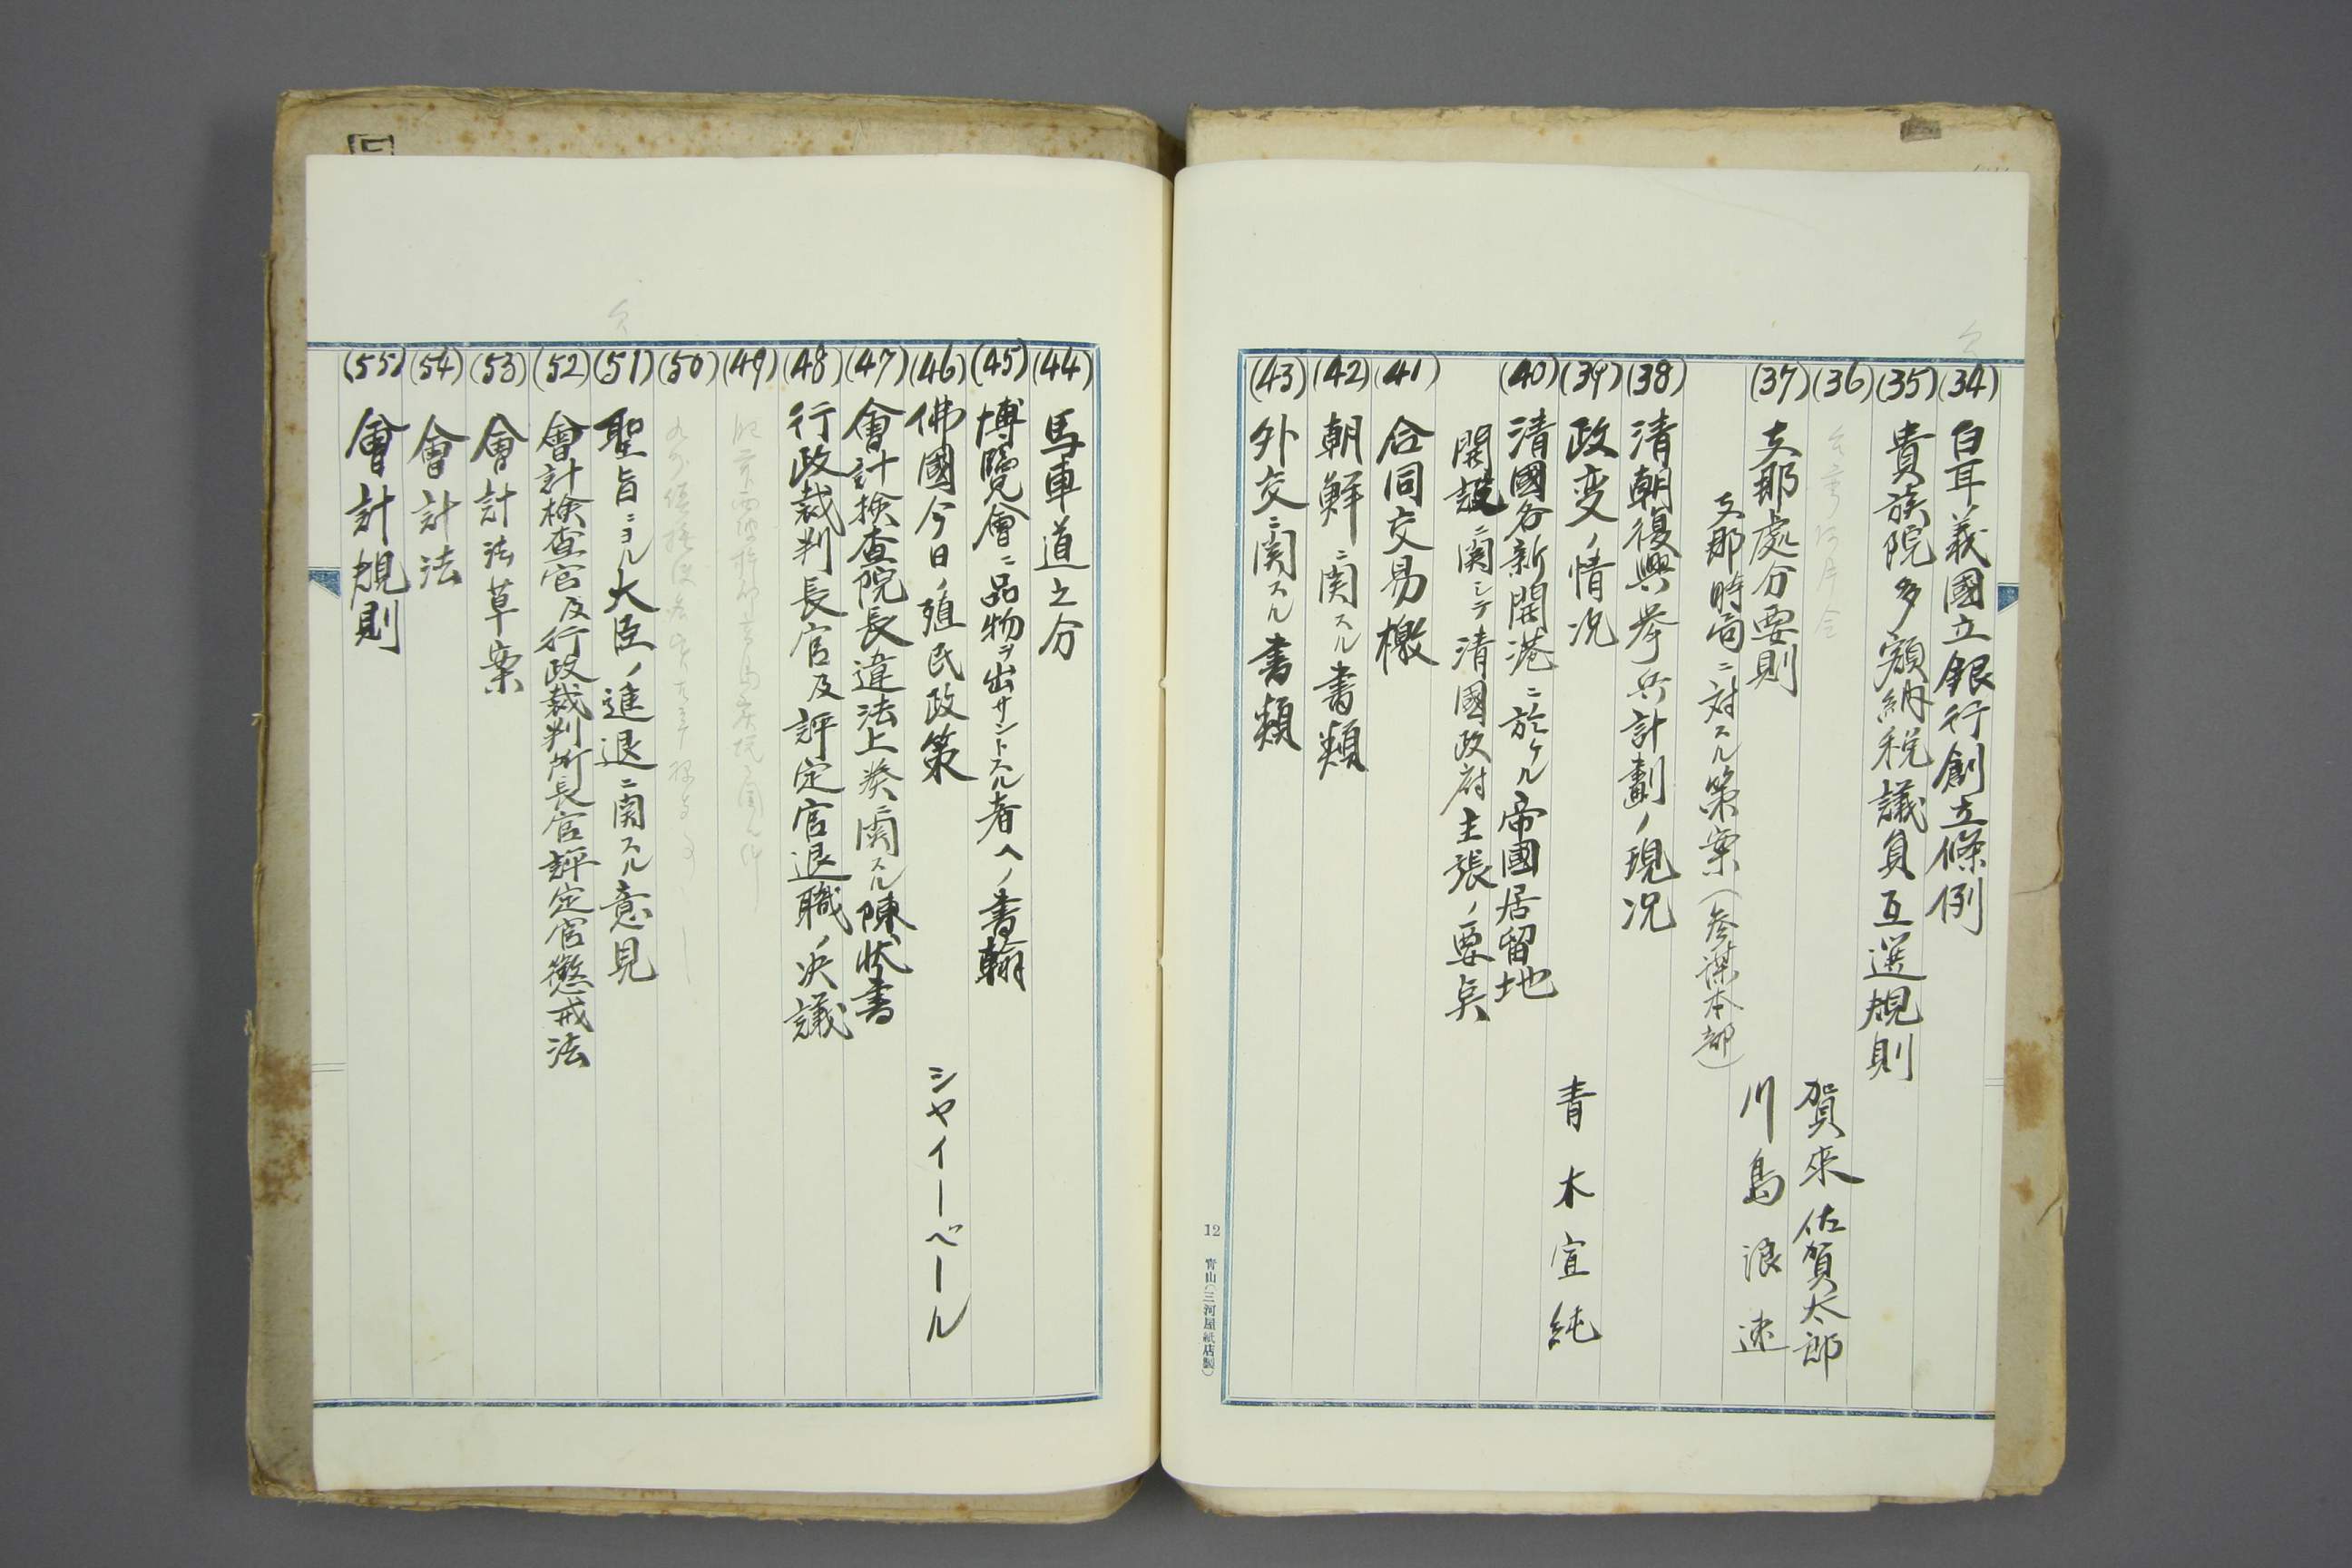 (34) 白耳義國立銀行創立條例
(35) 貴族院多額納税議員互選規則
(36) 賀来佐賀太郎
(37) 支那處分要則 川島浪速
支那時局ニ対スル策案(参謀本部)
(38) 清朝復興挙兵計劃ノ現况
(39) 政変ノ情况 青木宣純
(40) 清國各新開港ニ於ケル帝國居留地
開設ニ関シテ清國政府主張ノ要点
(41) 合同交易檄
(42) 朝鮮ニ関スル書類
(43) 外交ニ関スル書類
12 青山(三河屋紙店製)
(44) 馬車道之分
(45) 博覧會ニ品物ヲ出サントスル者ヘノ書翰
(46) 佛國今日ノ殖民政策 シャイーベール
(47) 會計検査院長違法上奏ニ関スル陳状書
(48) 行政裁判長官及評定官退職ノ决議
(49)
(50)
(51) 聖旨ニヨル大臣ノ進退ニ関スル意見
(52) 會計検査官及行政裁判所長官評定官懲戒法
(53) 會計法草案
(54) 會計法
(55) 會計規則